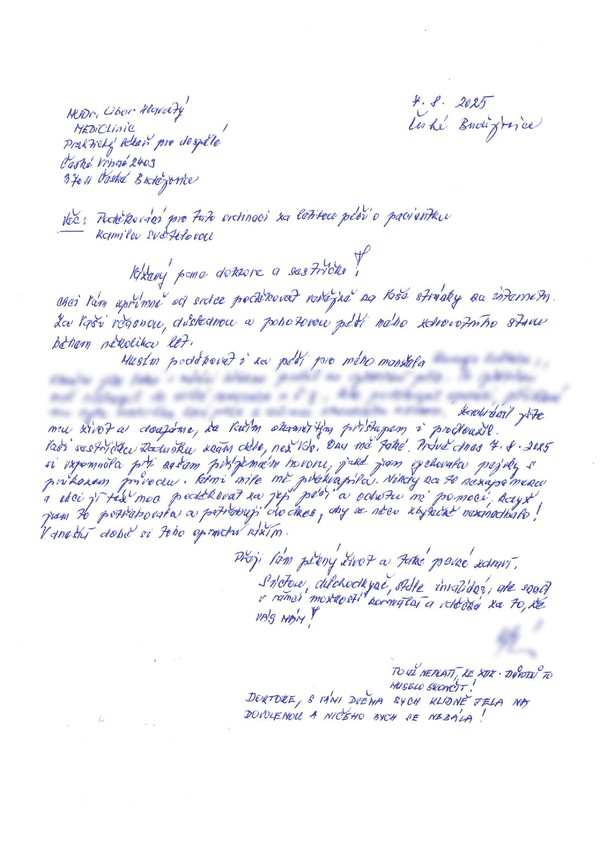 MUDr. Libor Hlavatý
MEDICLINIC
Praktický lékař pro dospělé
České Vrbné 2403
370 11 České Budějovice
7. 8. 2025
České Budějovice
Věc: Poděkování pro tuto ordinaci za letitou péči o pacientku
Kamilou Světelovou
Vážený pane doktore a sestřičko!
chci Vám upřímně od srdce poděkovat veřejně na Vaše stránky na internetu.
Za Vaši včasnou, důslednou a pohotovou péči mého zdravotního stavu
během několika let.
Musím poděkovat i za péči pro mého manžela
Zachránil jste
mu život a doufáme, že Vaším okamžitým přístupem i prodloužil.
Vaši sestřičku Radušku znám déle, než Vás. Ona mě také. Právě dnes 7. 8. 2025
si vzpomněla při našem příjemném hovoru, jaké jsem vychovala pejsky s
průkazem původu. Velmi mile mě překvapila. Nikdy na to nezapomenu
a chci jí též moc poděkovat za její péči a ochotu mi pomoci, když
jsem to potřebovala a potřebuji dodnes, aby se něco zbytečně nezanedbalo!
V dnešní době si toho opravdu vážím.
Přeji Vám pěkný život a také pevné zdraví.
S úctou, důchodkyně, stále invalidní, ale snad
v rámci možností normální a vděčná za to, že
VÁS MÁM!
TO UŽ NEPLATÍ, ZE ZDR. DŮVODŮ TO
MUSELO SKONČIT!
DOKTORE, S VÁMI DVĚMA BYCH KLIDNĚ JELA NA
DOVOLENOU A NIČEHO BYCH SE NEBÁLA!